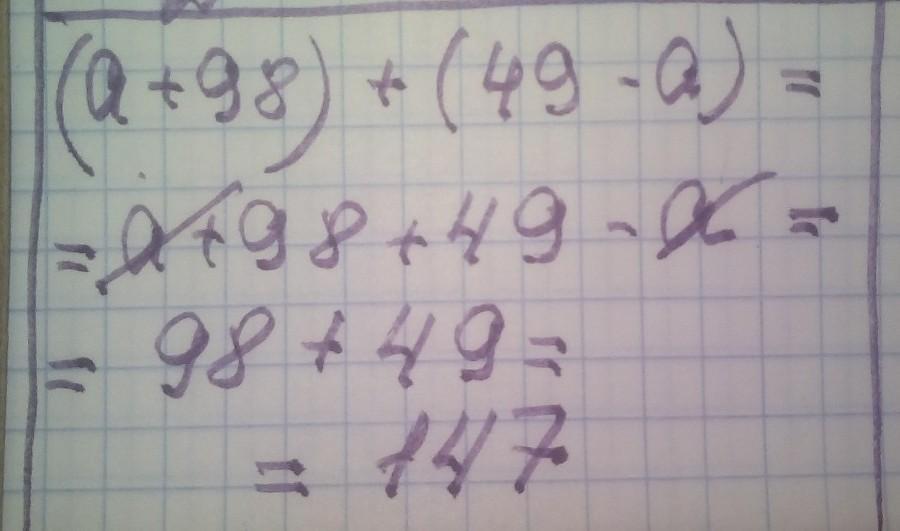 (a + 98) + (49 - a) =
= a + 98 + 49 - a =
= 98 + 49 =
= 147